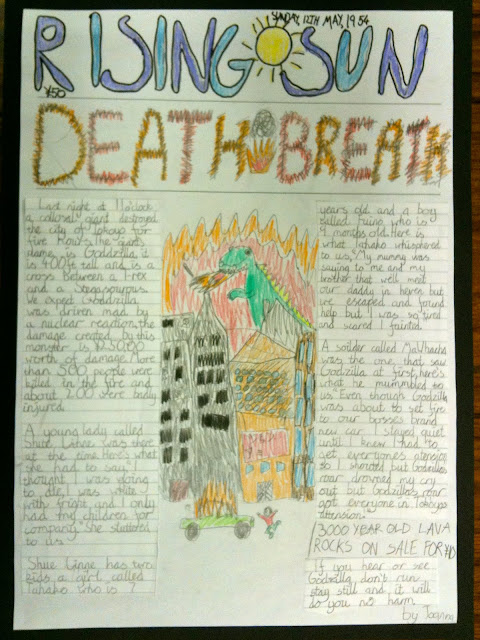 SUNDAY, 12TH MAY, 1954
RISING SUN
¥50
DEATH BREATH
Last night at 11 o'clock
a colonel giant destroyed
the city of Tokoyo for
five hours. The giants
name is Godzilla, it
is 400ft tall and is a
cross between a t-rex
and a Stegosaurus.
We expect Godzilla
was driven mad by
a nuclear reaction, the
damage created by this
monster is
worth of damage. More
than 500 people were
killed in the fire and
about 200 were badly
injured.
A young lady called
Shue Ginge was there
at the time. Here's what
she had to say, "I
thought I was going
to die, I was white
with fright and I only
had the children for
company." She stuttered
to us.
Shue Ginge has two
kids a girl called
Tahako who is 7
years old and a boy
called who is
9 months old. Here is
what Tahako whispered
to us, "My mummy was
saying to me and my
brother that we'll meet
our daddy in heven but
we escaped and found
help but I was so tired
and scared I fainted.
A soldier called
was the one that saw
Godzilla at first, here's
what he mummbled to
us. Even though Godzilla
was about to set fire
to our bosses brand
new car. I stayed quiet
until I knew I had to
get everyones atension
so I shouted but Godzilla's
roar drowned my cry
out but Godzilla's roar
got everyone in Tokoyo's
atension."
3000 YEAR OLD LAVA
ROCKS ON SALE FOR
If you hear or see
Godzilla, don't run
stay still and it will
do you no harm.
by